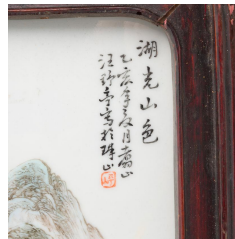 湖光山色
乙亥年夏月
汪野亭寫於珠山